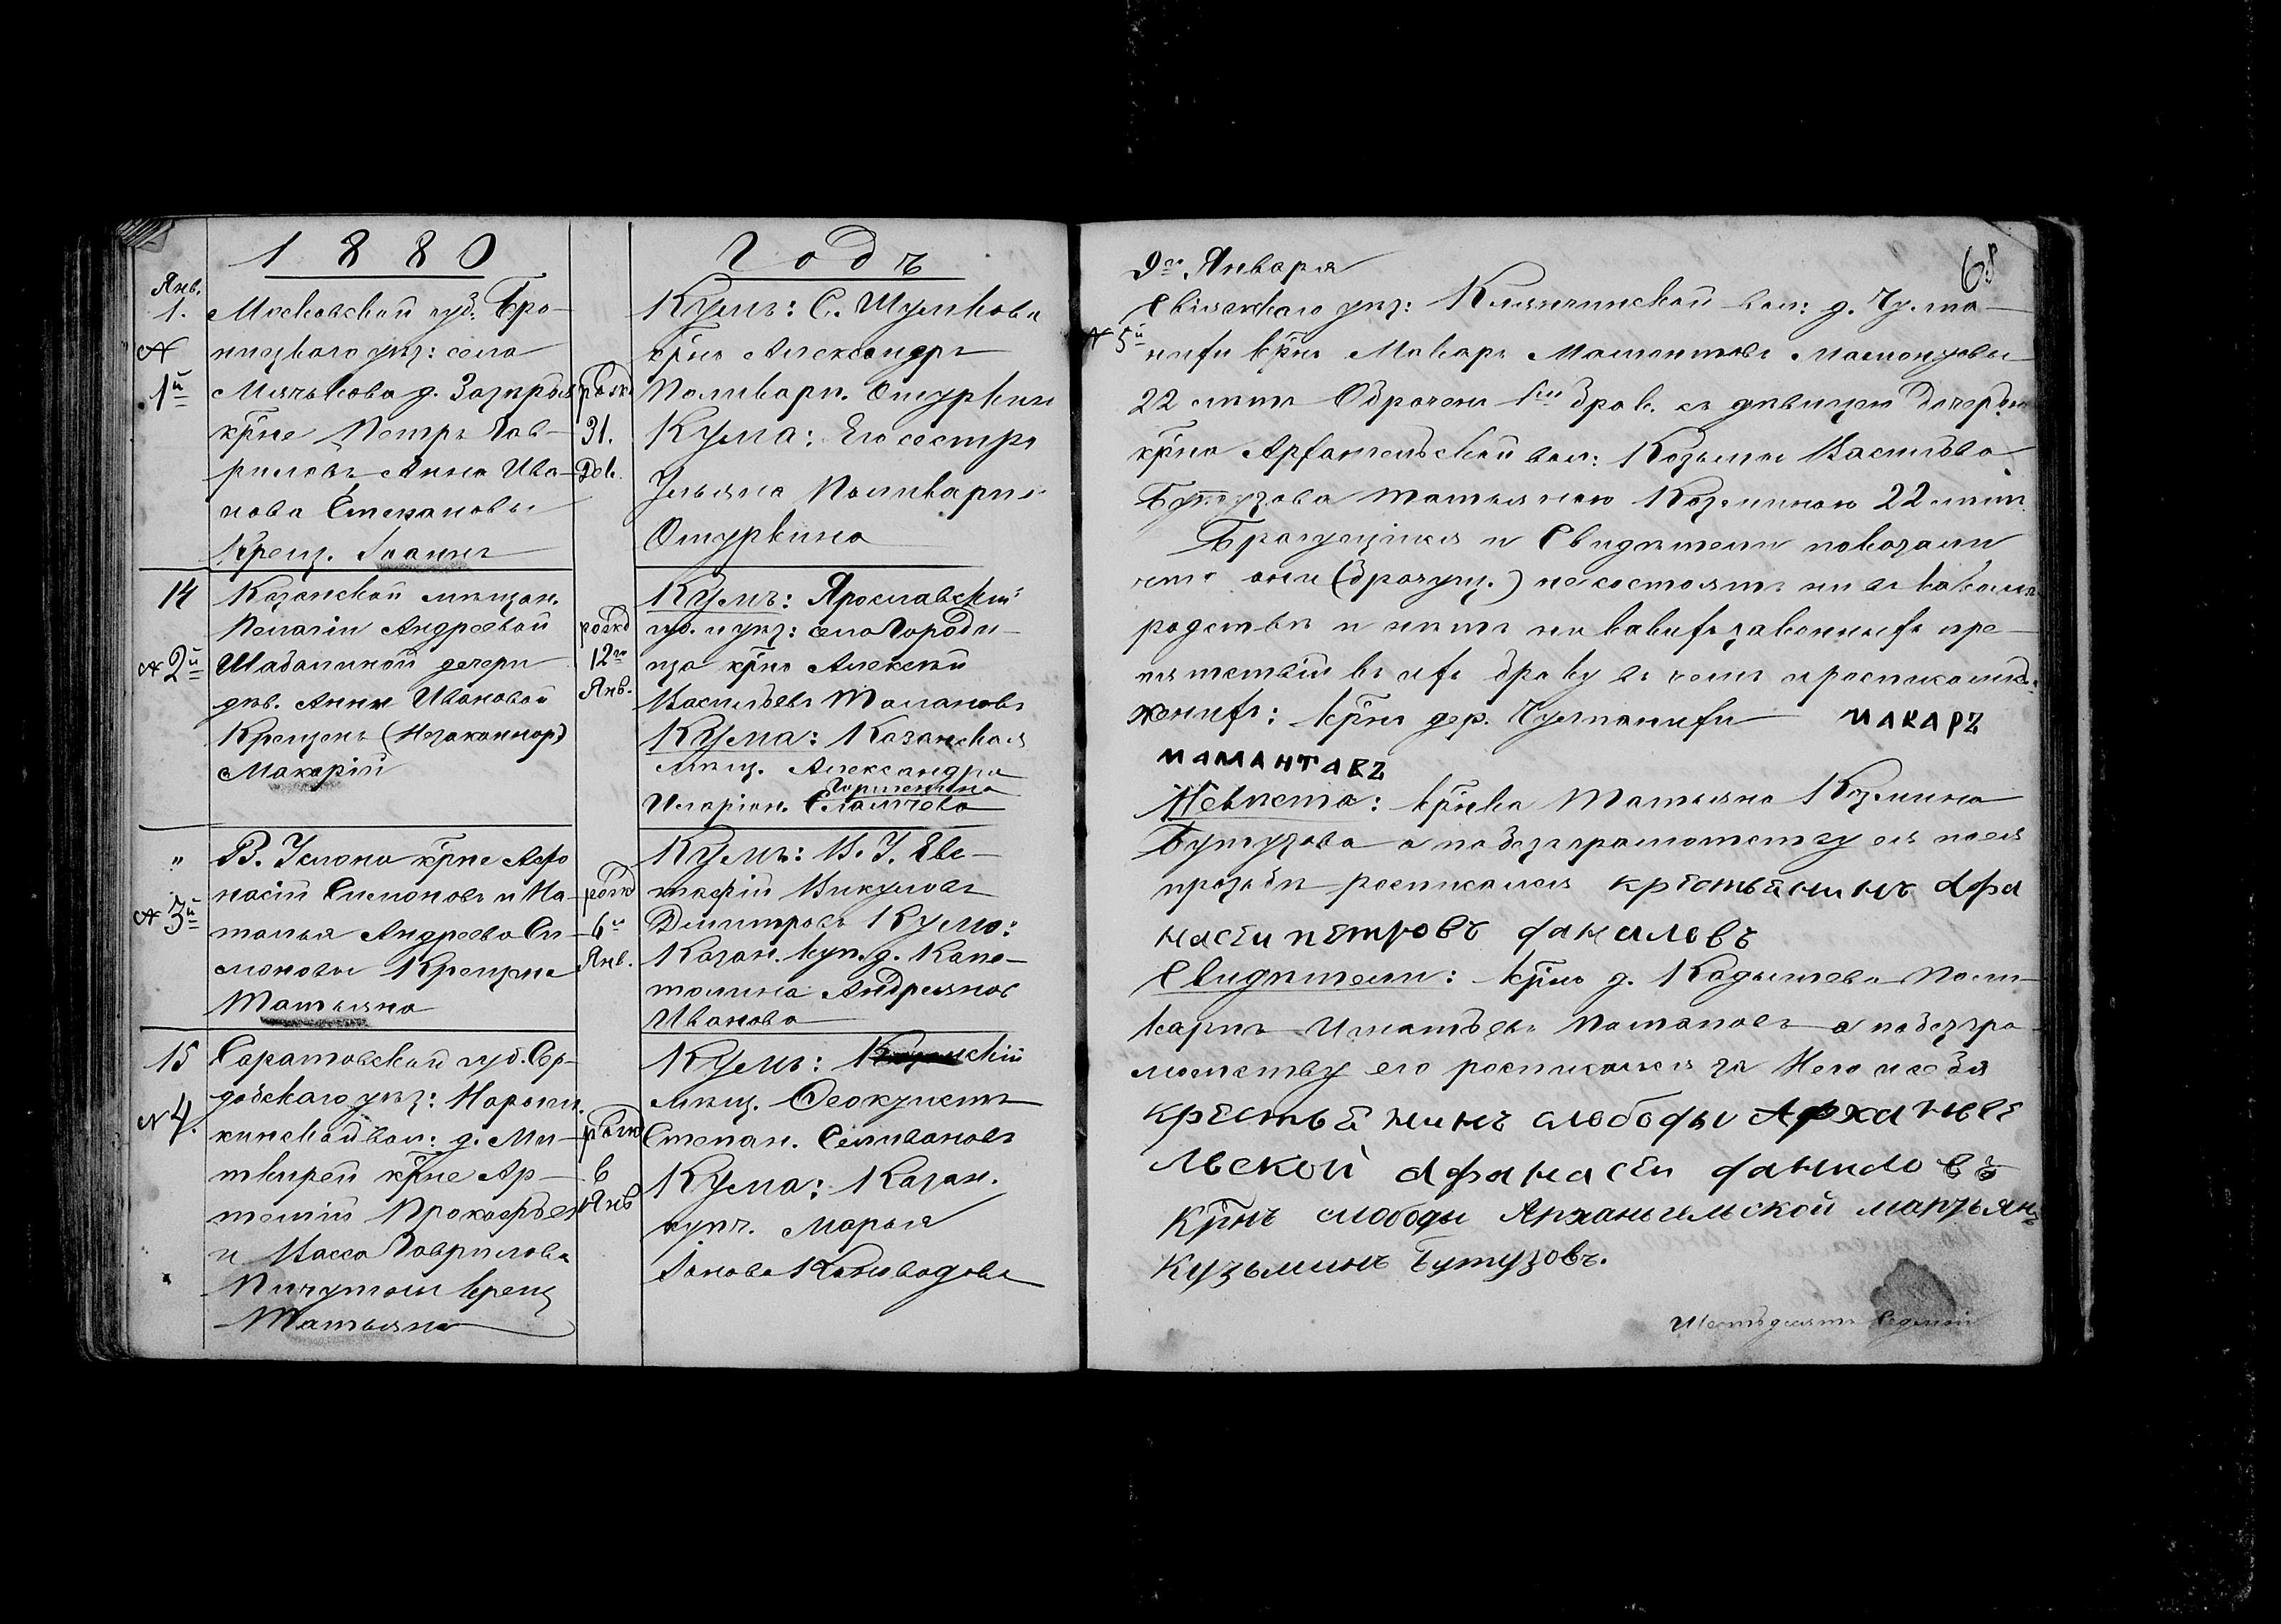 1880
Янв.
1.
№
1й
Московской губ. Бро-
ницкаго уѣз: села
Мячькова д.
кр̅не Петръ Гав-
риловъ Анна Ива-
нова Степановы
Крещ. Іоаннъ
рожд
31.
Дек.
годъ
Кумъ: С. Шумкова
кр̅нъ Александръ
Поликарп. Отуркинъ
Кума: Его сестра
Ульяна Поликарп.
Отуркина
14
№ 2й
Казанской мѣщан.
Пелагіи Андреевой
Шабалиной дочери
дѣв. Анны Ивановой
Крещенъ (Незаконнор.)
Макарій
рожд
12го
Янв.
Кумъ: Ярославской
губ. и уѣз: села Городи-
ща кр̅нъ Алексѣй
Васильевъ Талановъ
Кума: Казанская
мѣщ. Александра
Иларіон.
"
№ 3й
В. Услона кр̅не Афо
насій Симоновъ и На-
талья Андреева Си-
моновы Крещена
Татьяна
рожд
6го
Янв.
Кумъ: В. У. Евс-
тафій Викуловъ
Димитровъ Кума:
Казан. куп. д. Капе-
толина Андреянов
Иванова
15
№ 4.
Саратовской губ. Сер-
добскаго уѣз:
кинской вол: д. Ми-
кр̅не Ар-
темій Прокофьев
и Васса Гаврилова
Пичугины крещ
Татьяна
рожд
6
Янв
Кумъ:
мѣщ. Феоктистъ
Степан. Селивановъ
Кума: Казан.
купч. Марья
Іонова Коноводова
65
9го Января
№ 5й
Свіяжскаго уѣз: вол: д. Чулпа-
нихи кр̅нъ Макаръ Мамонтовъ
22 лѣтъ Обрачен 1мъ брак. съ дѣвицею дочерью
кр̅на Архангельской вол: Козьмы Васильева
Бутузова Татьяною Козминою 22 лѣтъ.
Брачущіися и Свидѣтели показали
что они (брачущ.) не состоятъ ни въ какомъ
родствѣ и нѣтъ ни какихъ законныхъ пре-
пятствій къ ихъ браку въ чемъ и росписались:
женихъ: кр̅нъ дер. Чулпанихи МАКАРЪ
МАМАНТАВЪ
Невѣста: кр̅нка Татьяна Козмина
Бутузова а по безграмотству ея по ея
прозьбѣ росписался крестьенинъ Афа
насеи петровъ даниловъ
Свидѣтели: кр̅нъ д. Кадышева Поли-
карпъ Игнатьевъ Потаповъ а по безгра-
мотству его росписался за Него и себя
крестьенинъ слободы Архангеле
льской Афанасеи даниловъ
Кр̅нъ слободы Архангельской мартьянъ
Кузьминъ Бутузовъ.
Шестьдесятъ